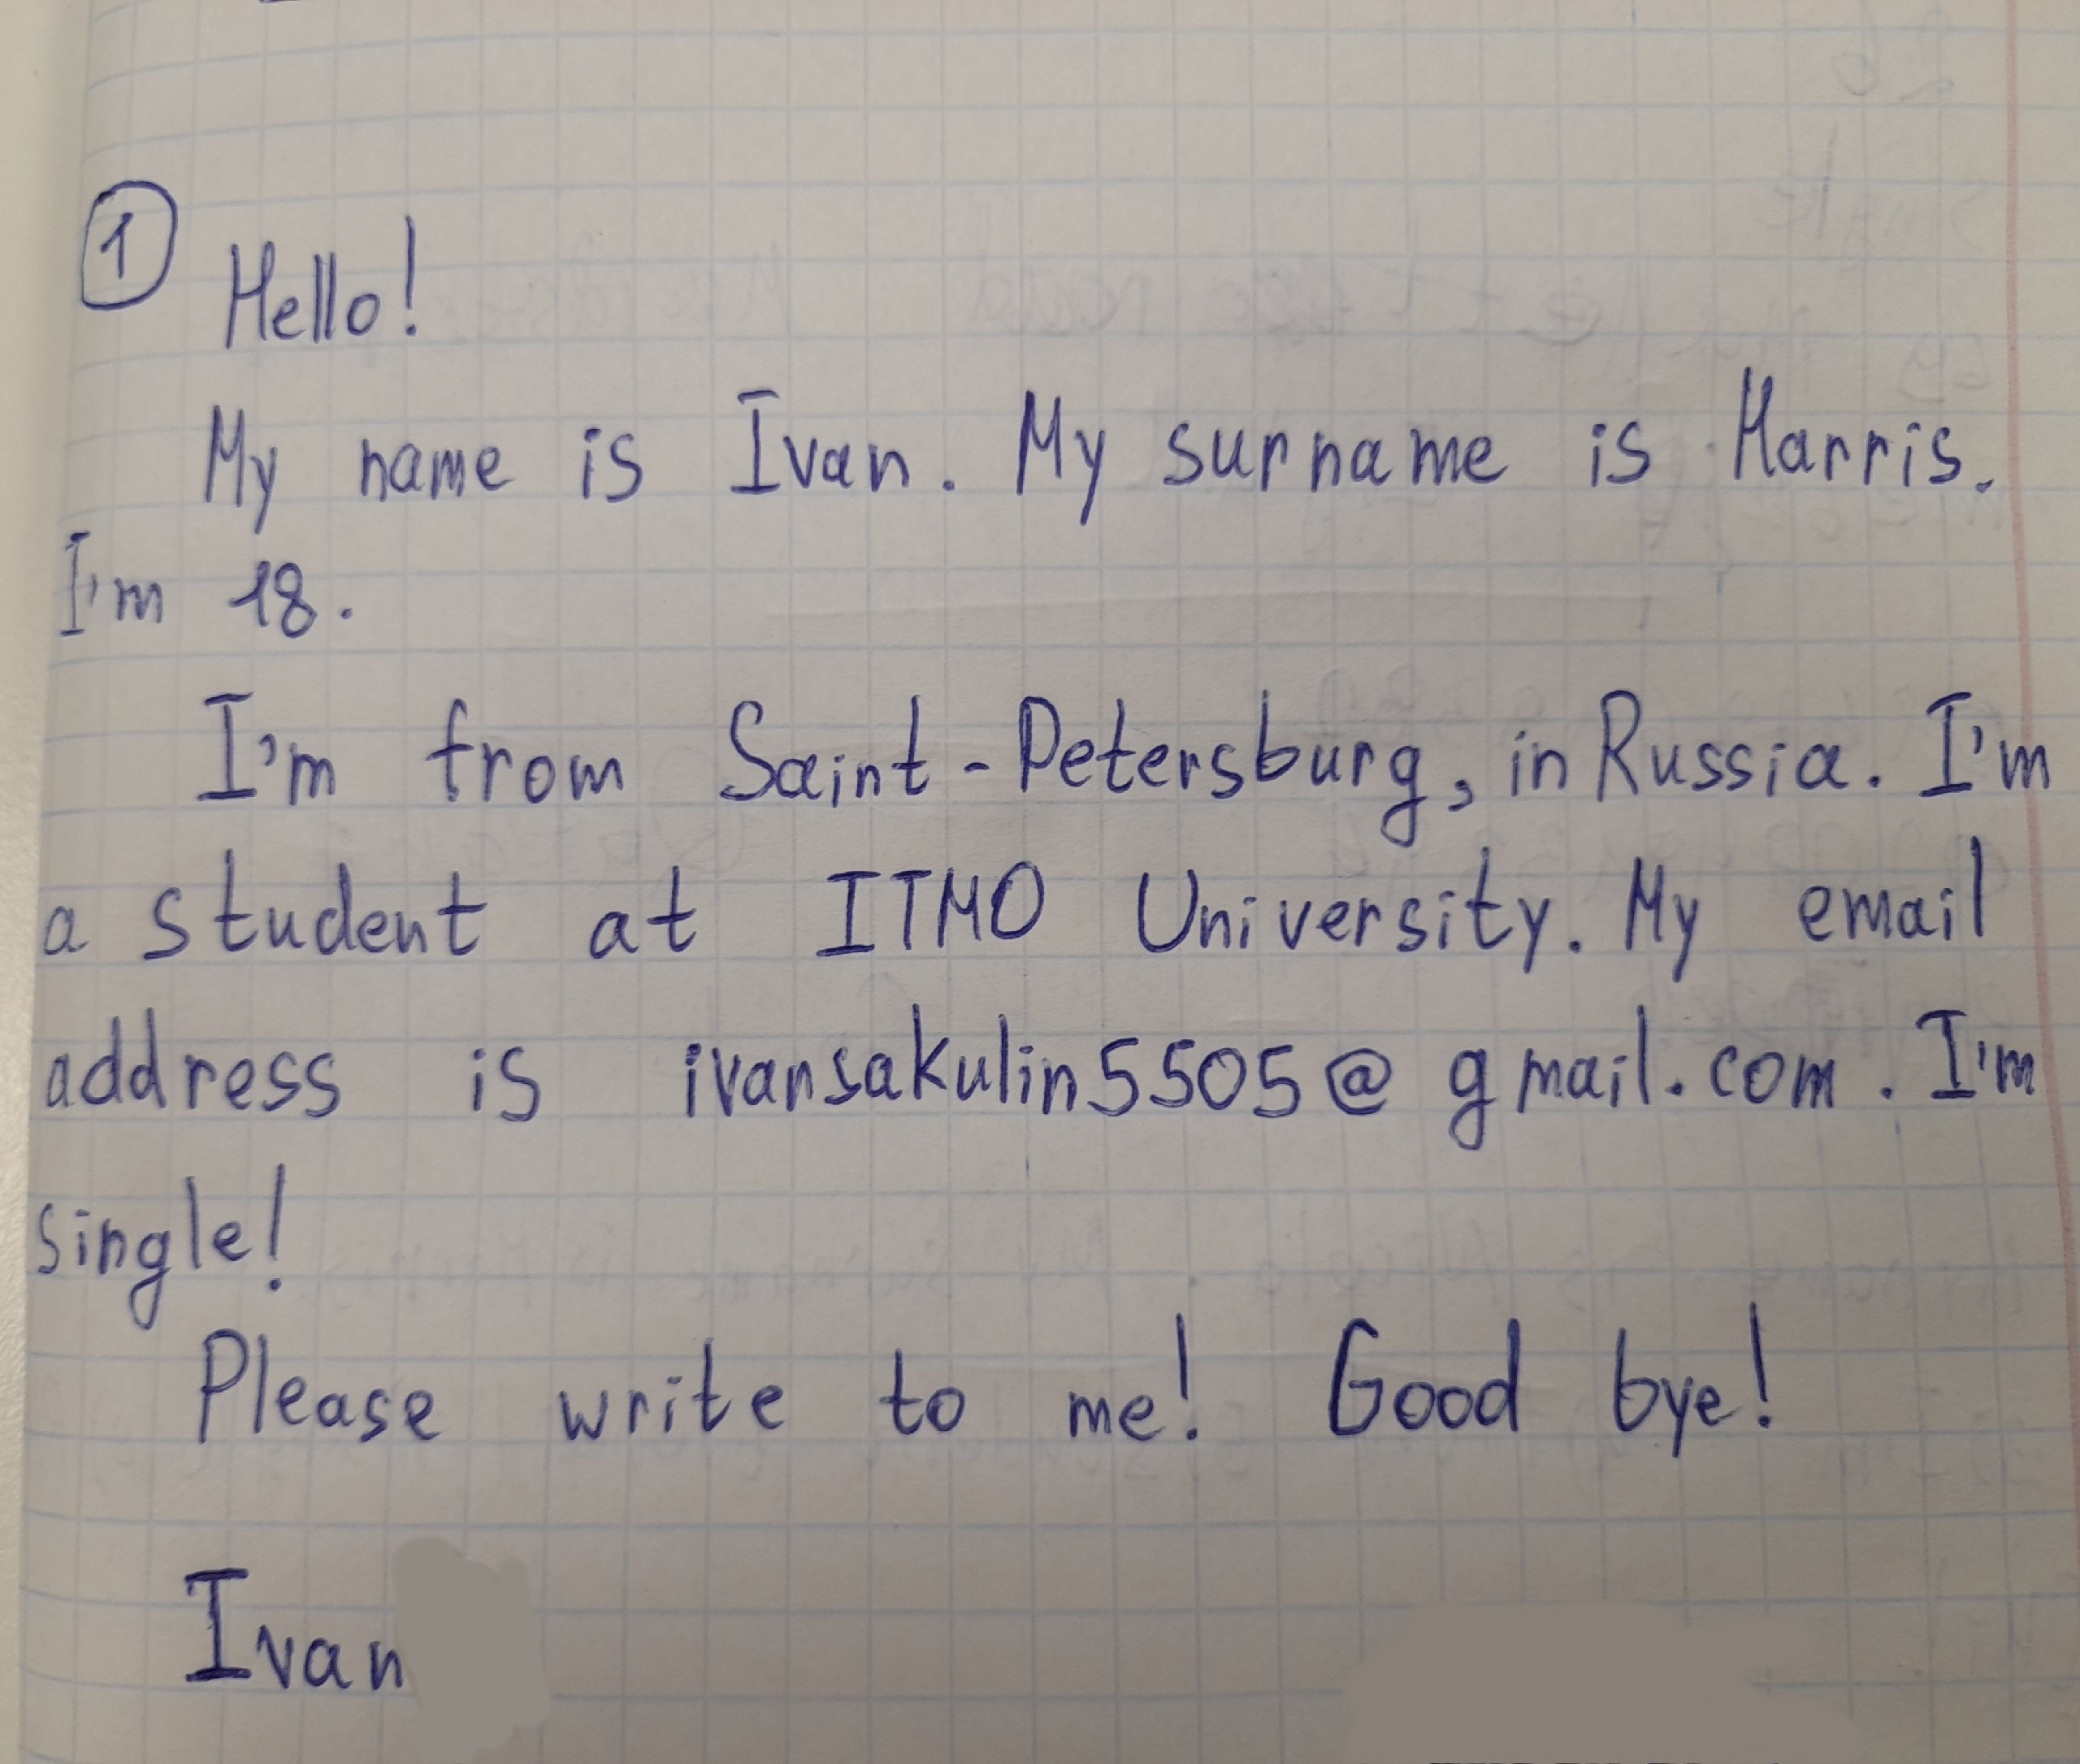 1 Hello!
My name is Ivan. My surname is Harris.
I'm 18.
I'm from Saint-Petersburg, in Russia. I'm
a student at ITMO University. My email
address is ivansakulin5505@gmail.com. I'm
single!
Please write to me! Good bye!
Ivan